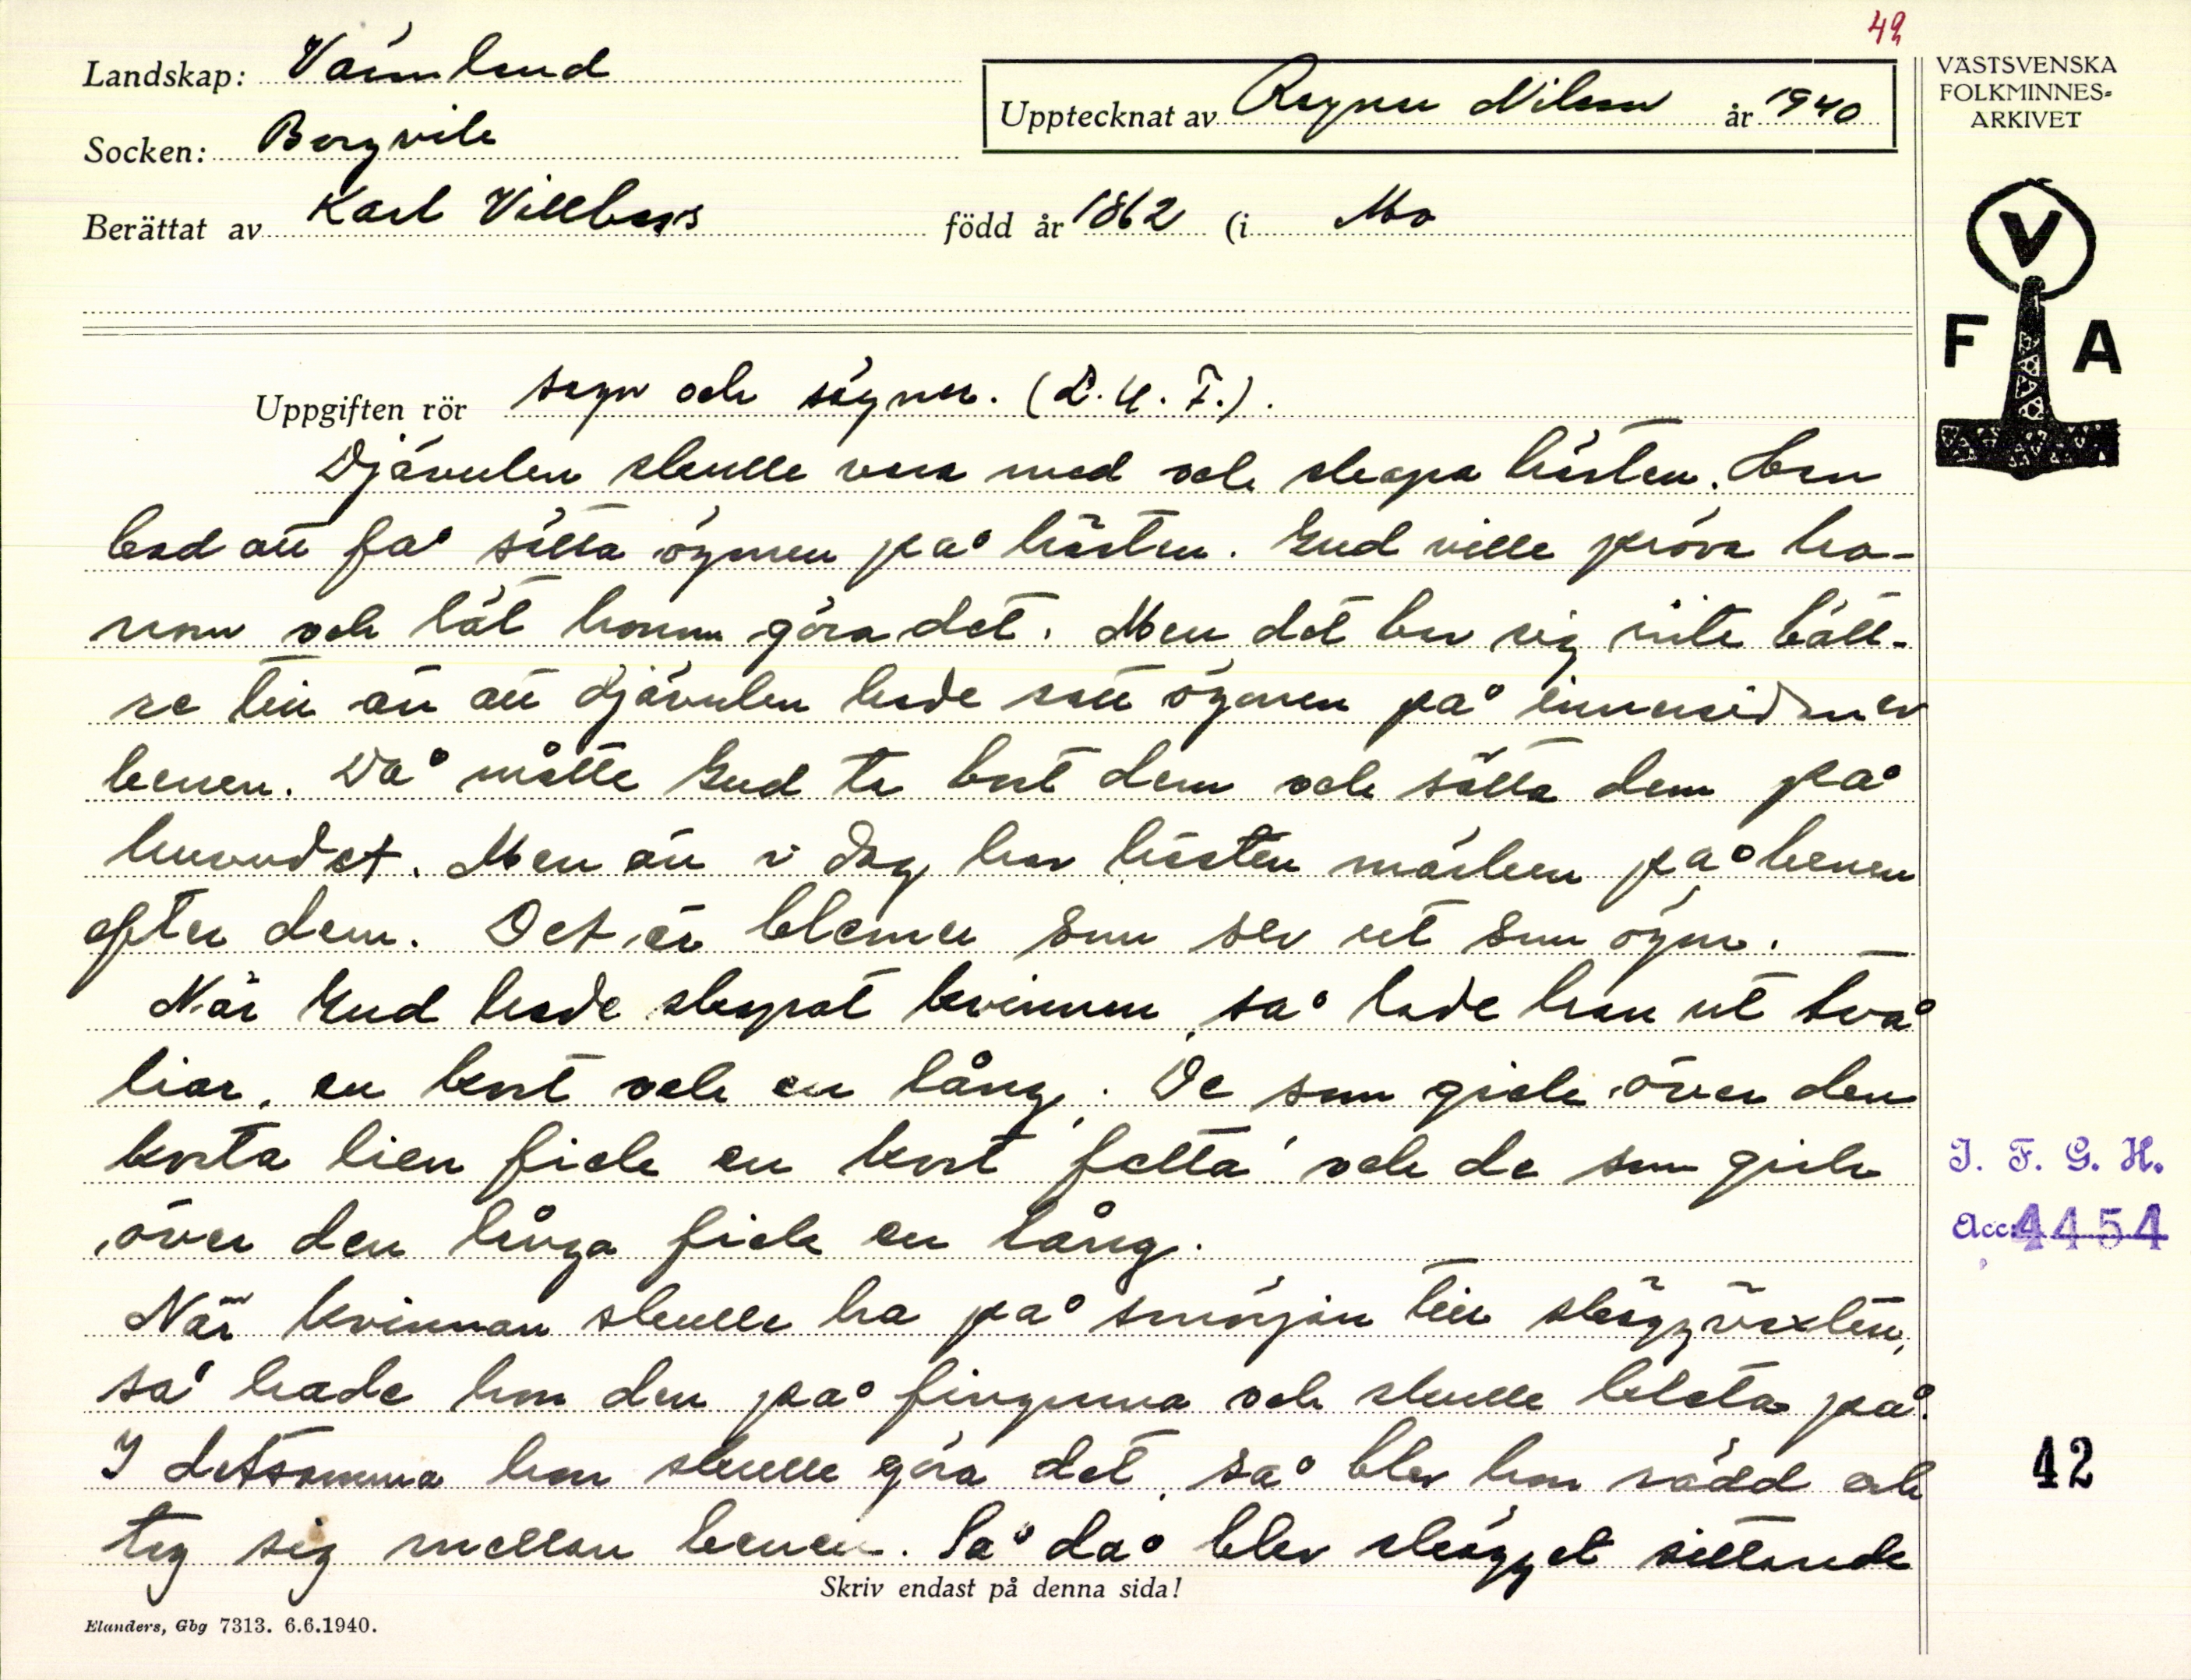 42
Landskap: Värmland
Upptecknat av Ragnar Nilsson år 1940
VÄSTSVENSKA
FOLKMINNES-
ARKIVET
Socken: Borgvik
Berättat av Karl Villberg född år 1862 (i Mo
V
F A
Uppgiften rör sagor och sägner. (L.U.F.).
Djävulen skulle vara med och skapa hästen. Han
bad att få sätta ögonen på hästen. Gud ville pröva ho-
nom och lät honom göra det. Men det bar sig inte bätt-
re till än att djävulen hade satt ögonen på innersidan av
benen. Då måtte Gud ta bort dem och sätta dem på
huvudet. Men än i dag har hästen märken på benen
efter dem. Det är blemer som ser ut som ögon.
När Gud hade skapat kvinnan, så lade han ut två
liar, en kort och en lång. De som gick över den
korta lien fick en kort fetta och de som gick
över den långa fick en lång.
När kvinnan skulle ha på smörjan till skäggväxten,
så hade hon den på fingrarna och skulle kleta på.
I detsamma hon skulle göra det, så blev hon rädd och
tog sig mellan benen. Så då blev skägget sittande
I. F. G. H.
Acc. 4454
42
Skriv endast på denna sida!
Elanders, Gbg 7313. 6.6.1940.